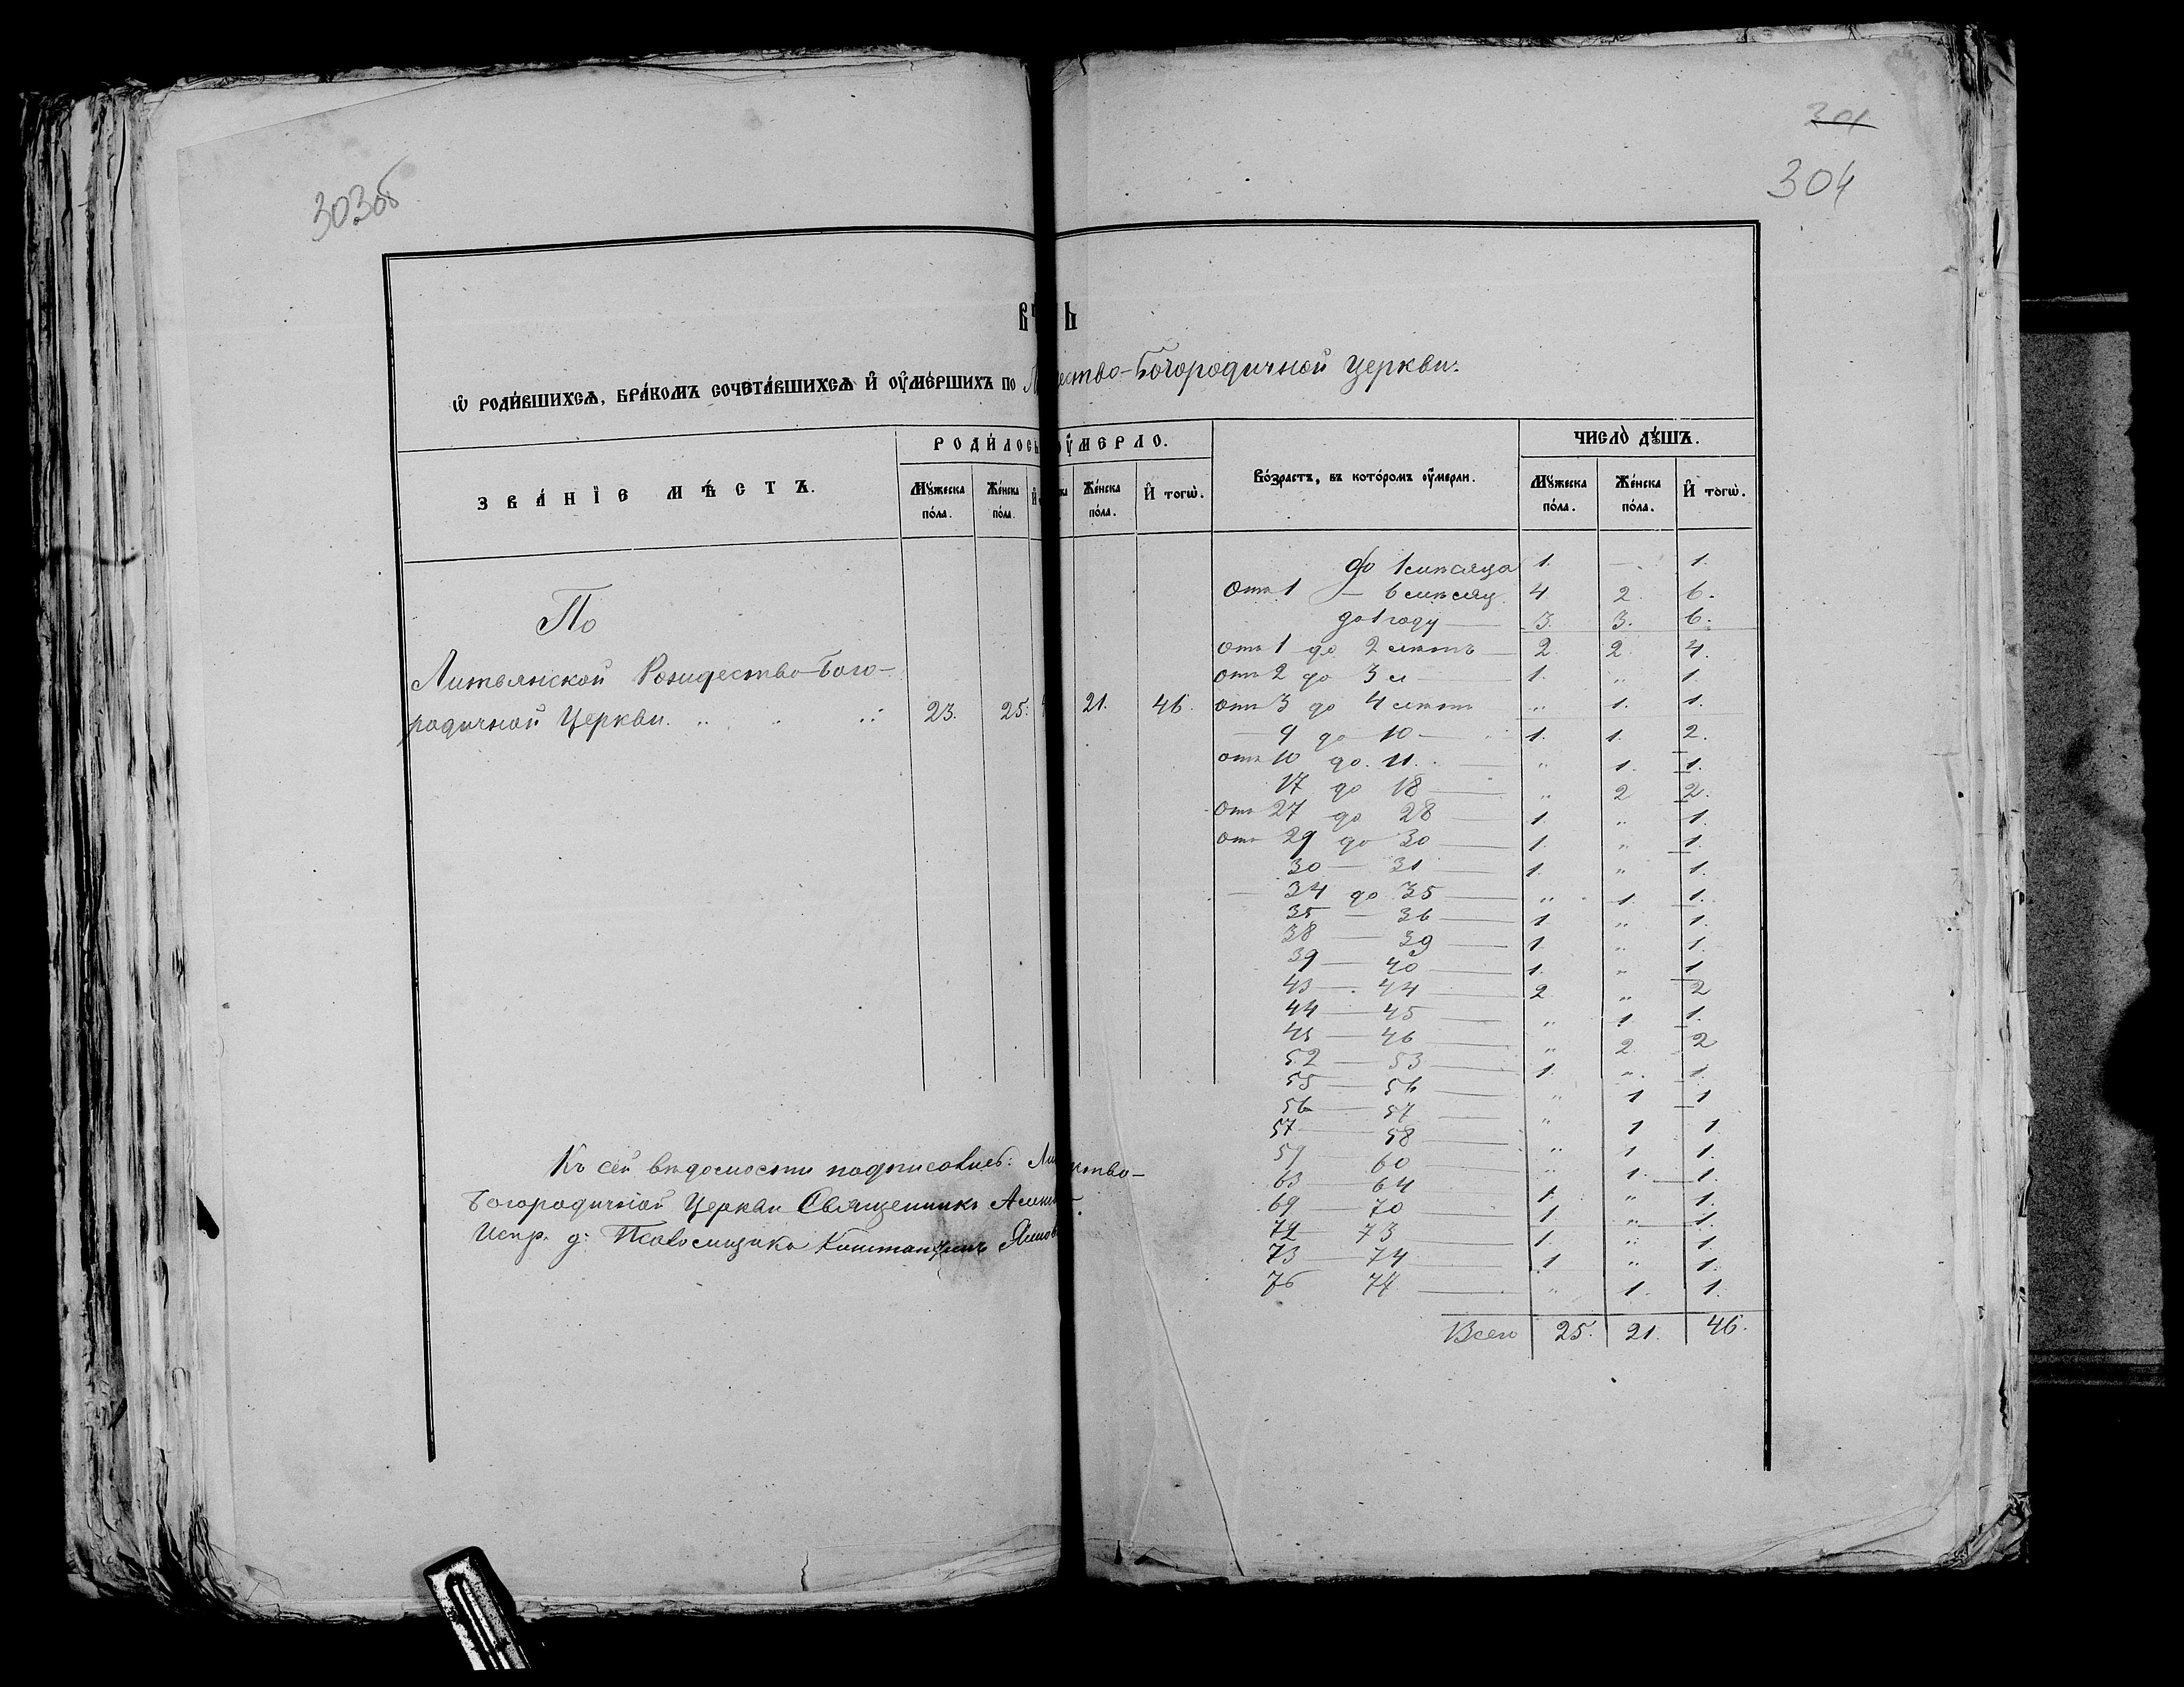 303об
304
301
ВѢ Ь
Ѿ РОДИ́ВШИХСѦ, БРА́КОМЪ СОЧЕТА́ВШИХСѦ И҆ ОУ҆МЕ́РШИХЪ ПО ество-Богородичной Церкви.
ЗВА́НІЕ МѢ́СТЪ.
РОДИ́ЛОСЬ ОУ҆МЕРЛО.
Во́зрастъ, въ кото́ромъ оу҆мерли.
ЧИСЛО̀ ДꙊ́ШЪ.
Мꙋжеска по́ла. Же́нска по́ла. Же́нска по́ла. И҆ тогѡ̀. Мꙋжеска по́ла. Же́нска по́ла. И҆ тогѡ̀.
По
Литвянской Рождество-Бого-
родичной Церкви. 23. 25. 21. 46.
до 1 мѣсяца 1. — 1.
Отъ 1 — 6 мѣсяц. 4 2. 6.
до 1 году 3. 3. 6.
отъ 1 до 2 лѣтъ 2. 2. 4.
отъ 2 до 3 л 1. " 1.
отъ 3 до 4 лѣтъ " 1. 1.
— 9 до 10 — 1. 1. 2.
отъ 10 до 11. " 1. 1.
17 до 18 " 2 2.
Отъ 27 до 28 1. " 1.
отъ 29 до 30 1. " 1.
30 — 31 1. " 1.
— 34 до 35 " 1 1.
35 — 36 1 " 1.
38 — 39 1. " 1.
39 — 40 1. " 1
43 — 44 2 " 2
44 — 45 " 1 1.
45 — 46 " 2. 2
52 — 53 1. " 1.
55 — 56 " 1 1
56 — 57 " 1 1
57 — 58 " 1 1.
59 60 " 1. 1.
63 — 64 1. " 1.
69 — 70 1. " 1.
72 — 73 1. " 1.
73 — 74 1 " 1.
76 74 " 1. 1.
Всего 25. 21. 46.
Къ сей вѣдомости подписались: Ли ство-
Богородичной Церкви Священникъ
Испр. д. Псаломщика Константинъ